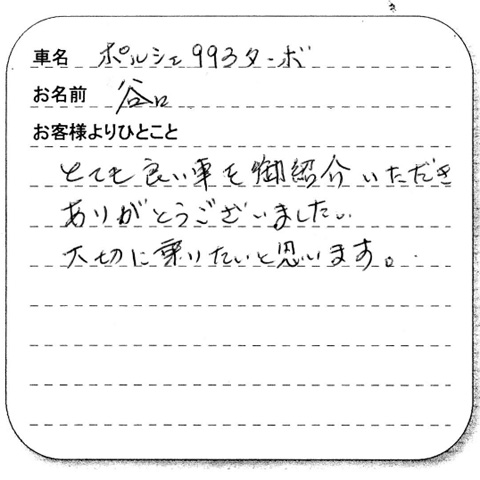 車名 ポルシェ993ターボ
お名前 谷口
お客様よりひとこと
とても良い車を御紹介いただき
ありがとうございました。
大切に乗りたいと思います。